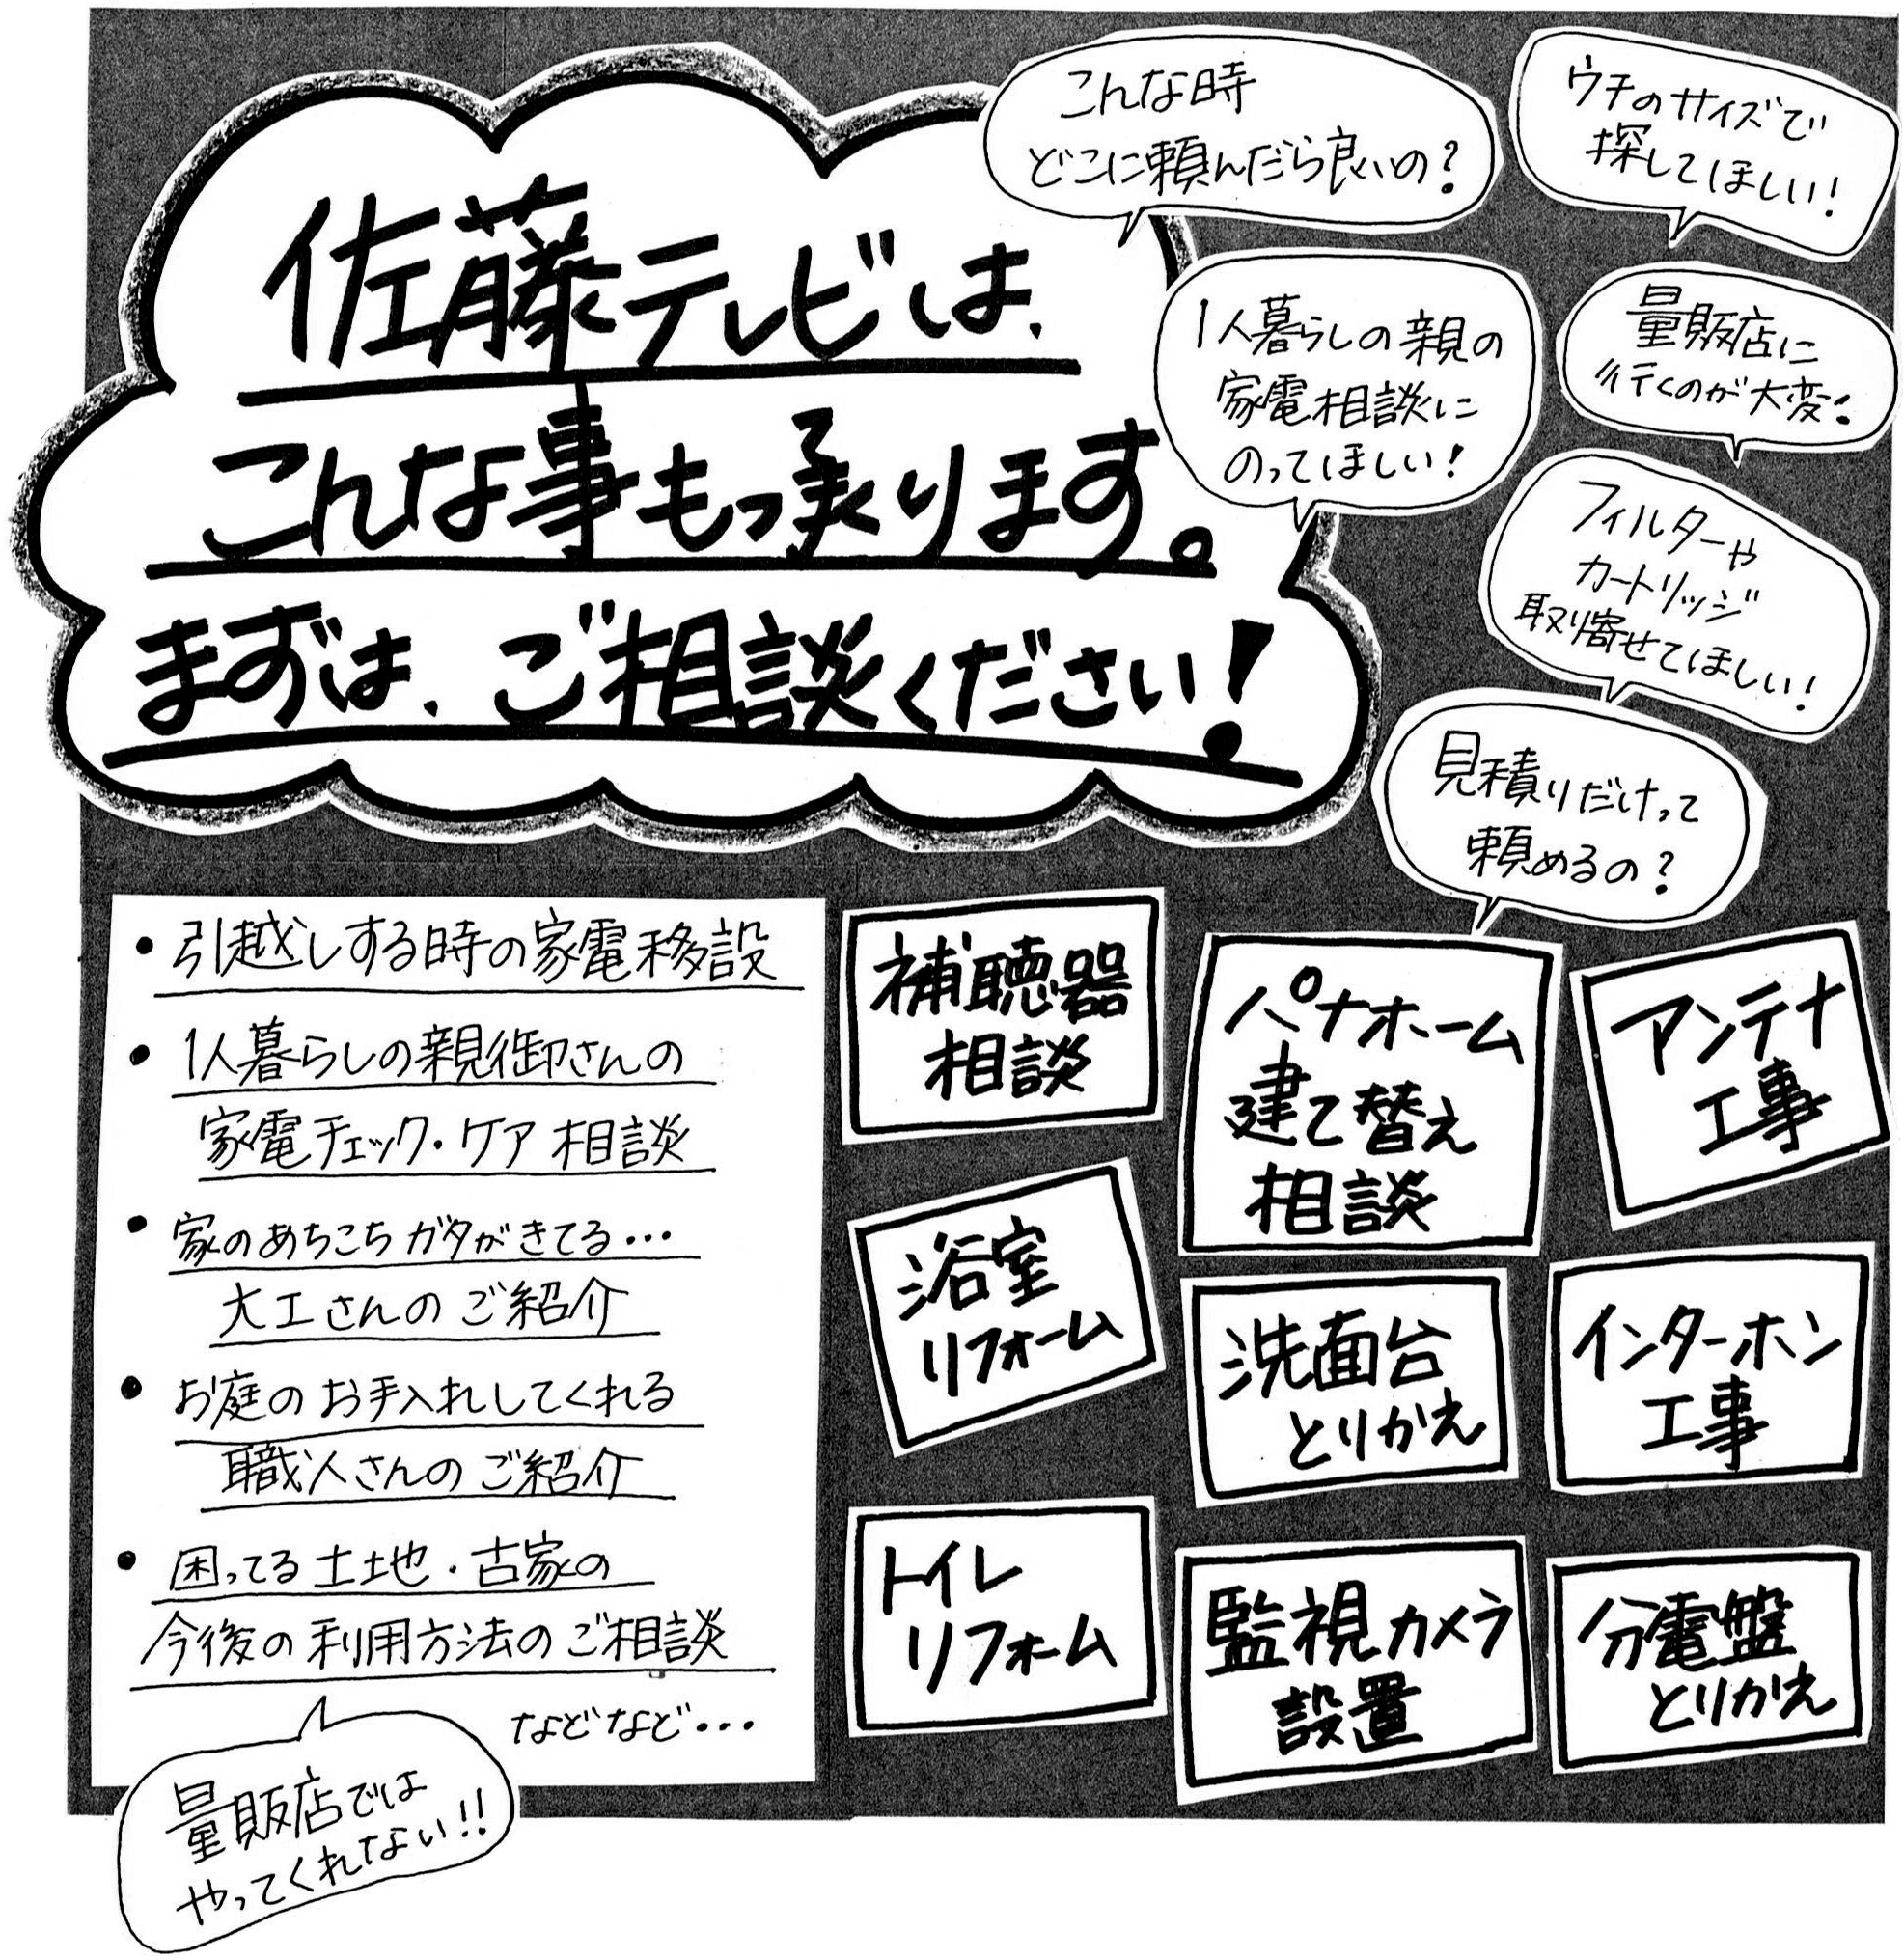 佐藤テレビは、
こんな事もっ承ります。
まずは、ご相談ください!
こんな時
どこに頼んだら良いの?
ウチのサイズで
探してほしい!
1人暮らしの親の
家電相談に
のってほしい!
量販店に
行くのが大変!
フィルターや
カートリッジ
取り寄せてほしい!
見積りだけって
頼めるの?
・引越しする時の家電移設
・1人暮らしの親御さんの
家電チェック・ケア相談
・家のあちこちガタがきてる…
大工さんのご紹介
・お庭のお手入れしてくれる
職人さんのご紹介
・困ってる土地・古家の
今後の利用方法のご相談
などなど…
量販店では
やってくれない!!
補聴器
相談
パナホーム
建て替え
相談
アンテナ
工事
浴室
リフォーム
洗面台
とりかえ
インターホン
工事
トイレ
リフォーム
監視カメラ
設置
分電盤
とりかえ